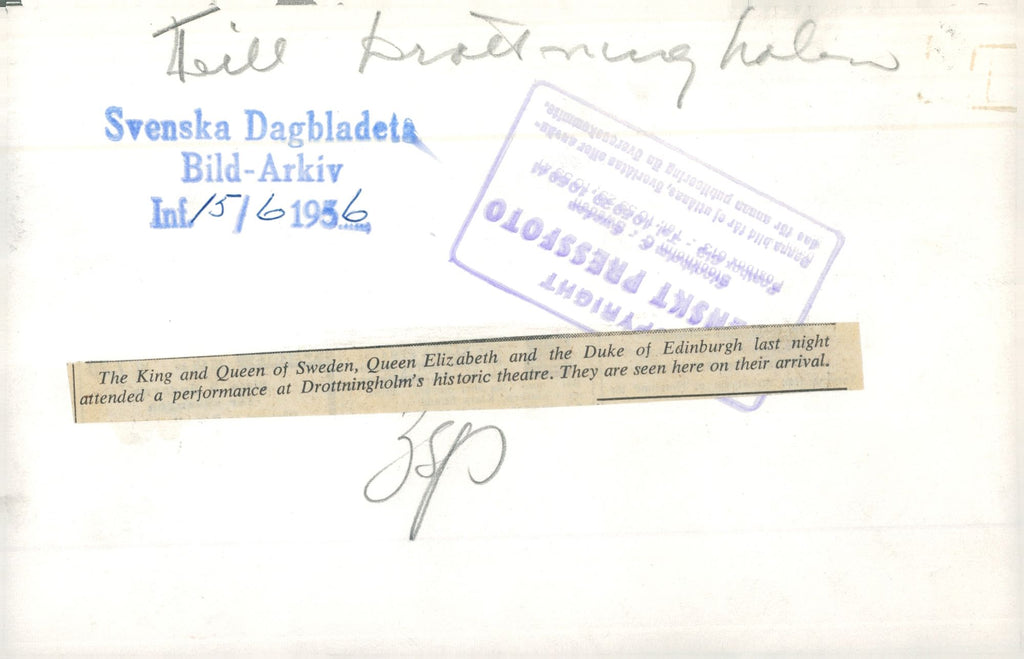 Till Drottningholm
Svenska Dagbladets
Bild-Arkiv
Inf. 15/6 1956
PYRIGHT
ENSKT PRESSFOTO
Postbox 613 - Tel.
Stockholm 6 - Sweden
Denna bild får ej utlånas, överlåtas eller använ-
das för annan publicering än överenskommits.
The King and Queen of Sweden, Queen Elizabeth and the Duke of Edinburgh last night
attended a performance at Drottningholm's historic theatre. They are seen here on their arrival.